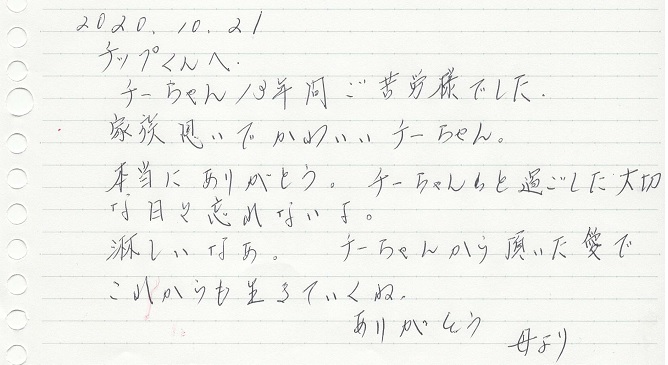 2020.10.21
チップくんへ.
チーちゃん13年間ご苦労様でした.
家族思いでかわいいチーちゃん。
本当にありがとう。チーちゃんと過ごした大切
な日を忘れないよ。
淋しいなあ。 チーちゃんから頂いた愛で
これからも生きていくね.
ありがとう
母より